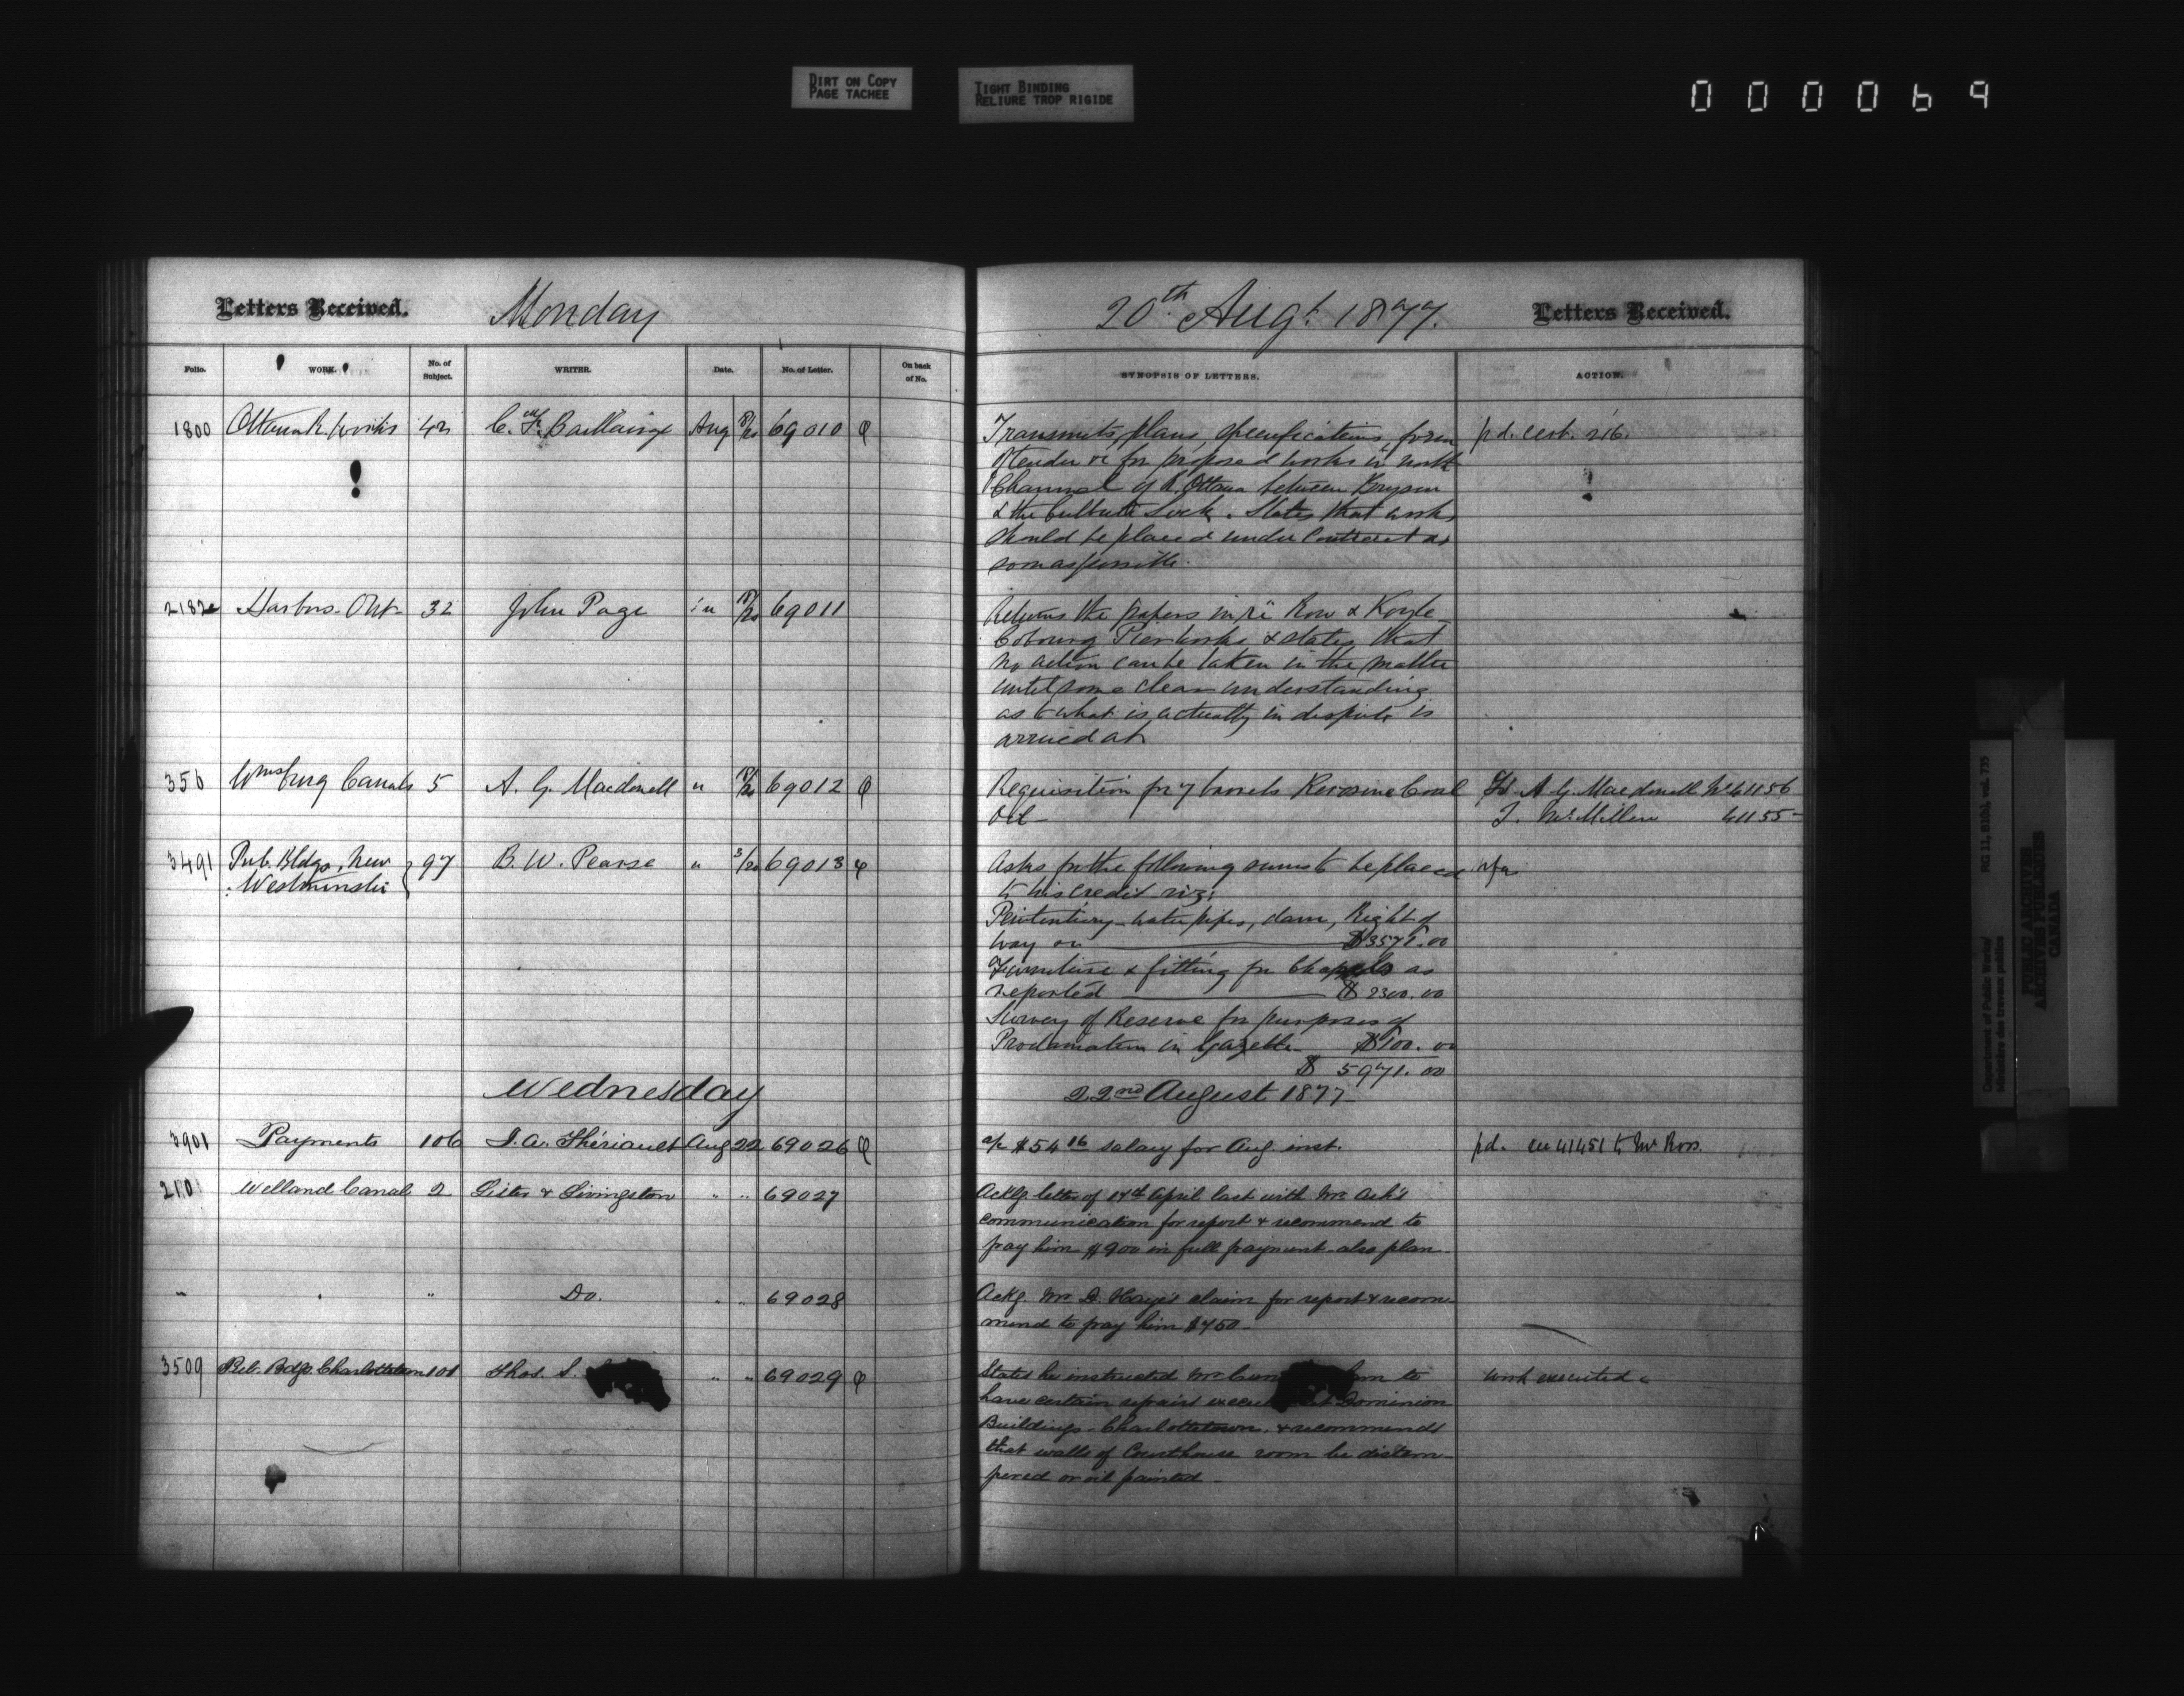 DIRT ON COPY
PAGE TACHEE
TIGHT BINDING
RELIURE TROP RIGIDE
000069
Letters Received. Monday
20th Augt. 1877. Letters Received.
Folio. WORK. No. of Subject. WRITER. Date. No. of Letter. On back of No.
SYNOPSIS OF LETTERS. ACTION.
1800 Ottawa R. Works 42 C. F. Baillairgé Aug 18/20 69010
Transmits, plans, specifications, form
of tender &c for proposed works in north
Channel of R. Ottawa between Bryson
& the Culbute Lock. States that works
should be placed under Contract as
soon as possible.
pd. cert. 216.
2182 Harbors Ont 32 John Page " 18/20 69011
Returns the papers in re Row & Koyle
Cobourg Pier works & states that
no action can be taken in the matter
until some clear understanding
as to what is actually in dispute is
arrived at
356 Wmsburg Canals 5 A. G. Macdonell " 18/20 69012
Requisition for 7 barrels Kerosine Coal
Oil
A G. Macdonell No 41156
J. McMillan 41155
3491 Pub. Bldgs. New
Westminster 97 B. W. Pearse " 3/20 69013
Asks for the following sums to be placed
to his credit viz:
Penitentiary - water pipes, dam, Right of
way &c $3571.00
Furniture & fitting for Chapels as
reported $2300.00
Survey of Reserve for purposes of
Proclamation in Gazette $100.00
$5971.00
Wednesday
22nd August 1877
3901 Payments 106 J. A. Thériault Aug 22 69026
a/c $54 16 salary for Aug. inst.
pd. 41451 to Mr Ross.
2101 Welland Canal 2 Lister & Livingston " " 69027
Ackg. letter of 14th April last with Mr. Ash's
communication for report & recommend to
pay him $900 in full payment - also plan
" " " Do. " " 69028
Ackg. Mr D. Hoye's claim for report & recom-
mend to pay him $750 -
3509 Pub. Bdgs. Charlottetown 101 Thos. S. " " 69029
States he instructed Mr to
have certain repairs Dominion
Buildings - Charlottetown, & recommends
that walls of Courthouse room be distem-
pered or oil painted -
work executed
Department of Public Works/
Ministère des travaux publics
RG 11, B1(b), vol. 735
PUBLIC ARCHIVES
ARCHIVES PUBLIQUES
CANADA